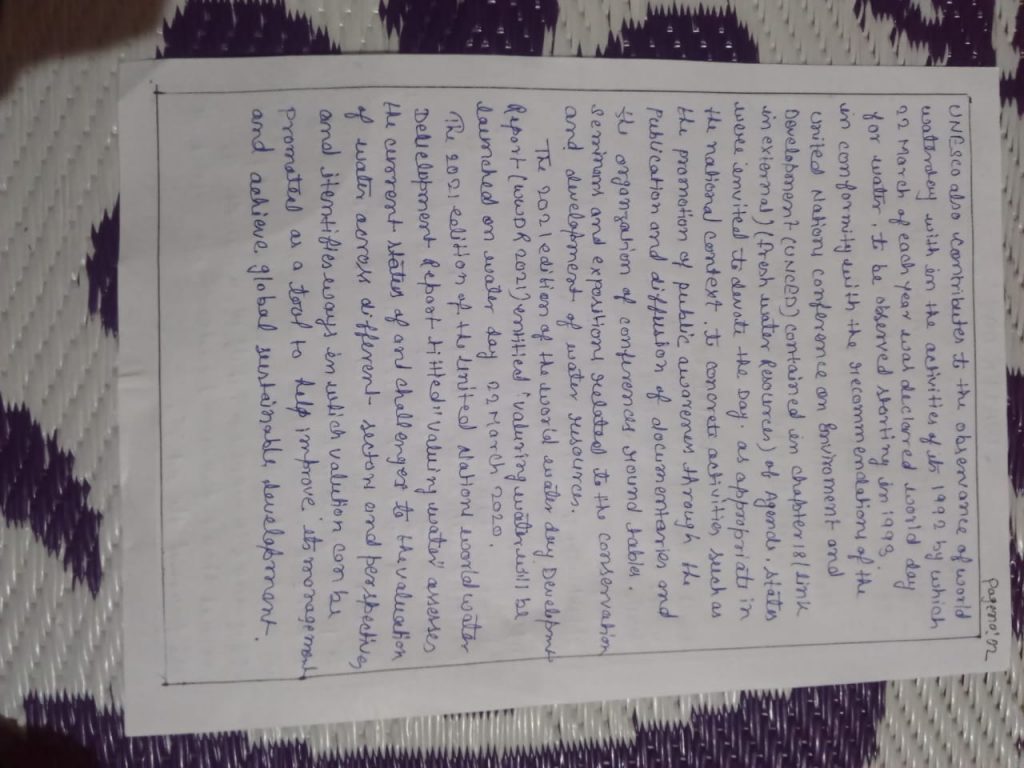 Pageno:02
UNESCO also contributes to the observance of world
waterday with in the activities of its 1992 by which
22 March of each year was declarred world day
for water, to be observed starting in 1993.
in comformity with the recommendations of the
united Nations conference on Enviroment and
Development (UNCED) contained in chapter 18 (link
in external) (fresh water Resources) of Agenda. states
were invited to devate the Day. as appropriate in
the national context. to concrete activities such as
the promotion of public awareness through the
Publication and diffusion of documentaries and
the organization of conferences round tables.
seminars and expositions related to the conservation
and development of water resources.
The 2021 edition of the world water day Development
Report (WWDR 2021) entitled "valuing water will be
launched on water day 22 March 2020.
The 2021 edition of the united Nations world water
Development Report tittled "valuing water" assesses
the current states of and challenges to the valuation
of water across different sectors and perspectives
and identifies ways in which valution can be
promoted as a tool to help improve its management
and achieve global sustainable development.